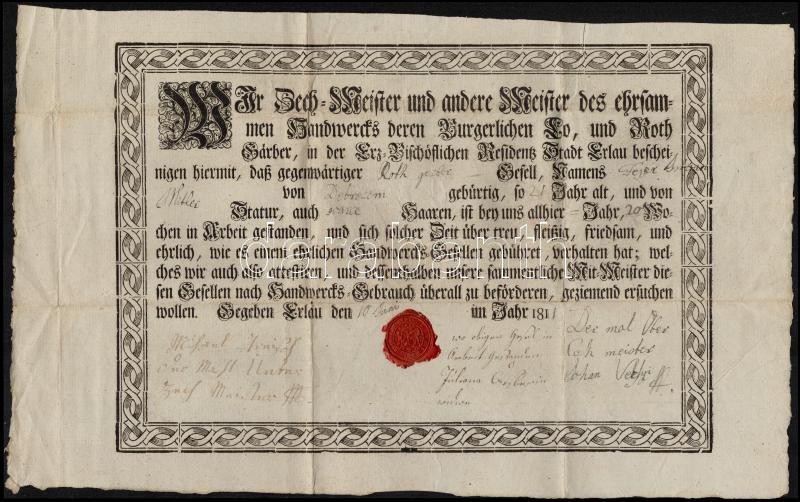 WIr Zech-Meister und andere Meister des ehrsam-
men Handwercks deren Burgerlichen Lo, und Roth
Gärber, in der Erz-Bischöflichen Residentz Stadt Erlau beschei-
nigen hiermit, daß gegenwärtiger Roth Gesell, Namens
von gebürtig, so 21 Jahr alt, und von Mitler
Statur, auch Haaren, ist bey uns allhier Jahr, 20 Wo-
chen in Arbeit gestanden, und sich solcher Zeit über treu, fleißig, friedsam, und
ehrlich, wie es einem ehrlichen Handwercks-Gesellen gebühret, verhalten hat; wel-
ches wir auch also attestiren, und dessenthalben unsere sammentliche Mit-Meister die-
sen Gesellen nach Handwercks-Gebrauch überall zu beförderen, geziemend ersuchen
wollen. Gegeben Erlau den 10 Juni im Jahr 1811
Michael
Der Mahl Unter
Zech Meister
wo obigen Gesel in
Arbeit gestanden
Juliana
Der mal Ober
Zeh meister
Johan